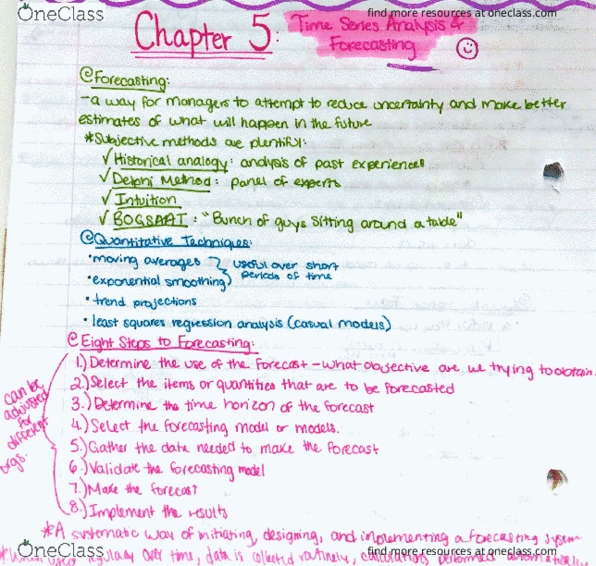 OneClass
find more resources at oneclass.com
Chapter 5: Time Series Analysis &
Forecasting
Forecasting:
-a way for managers to attempt to reduce uncertainty and make better
estimates of what will happen in the future
*Subjective methods are plentiful:
✓ Historical analogy: analysis of past experiences
✓ Delphi Method: panel of experts
✓ Intuition
✓ BOGSAAT: "Bunch of guys sitting around a table"
Quantitative Techniques:
• moving averages
• exponential smoothing
useful over short
periods of time
• trend projections
• least squares regression analysis (casual models)
Eight Steps to Forecasting:
1.) Determine the use of the forecast - what objective are we trying to obtain.
2.) Select the items or quantities that are to be forecasted
3.) Determine the time horizon of the forecast
4.) Select the forecasting model or models.
5.) Gather the data needed to make the forecast
6.) Validate the forecasting model
7.) Make the forecast
8.) Implement the results
can be
adjusted
for
different
orgs.
*A systematic way of initiating, designing, and implementing a forecasting system
*When used regularly over time, data is collected routinely, calculations performed automatically
OneClass
find more resources at oneclass.com